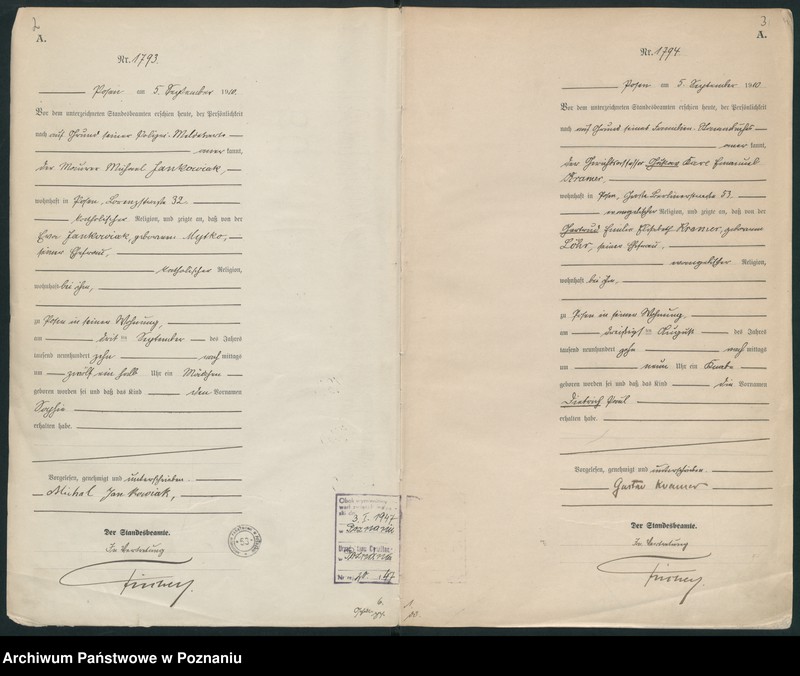 2
A.
Nr. 1793.
Posen am 5. September 1910.
Vor dem unterzeichneten Standesbeamten erschien heute, der Persönlichkeit
nach auf Grund seiner Polizei-Meldekarte
kannt,
der Maurer Michael Jankowiak,
wohnhaft in Posen, Lorenzstraße 32
katholischer Religion, und zeigte an, daß von der
Eva Jankowiak, geborenen Mytko,
seiner Ehefrau,
katholischer Religion,
wohnhaft bei ihm,
zu Posen in seiner Wohnung,
am September des Jahres
tausend neunhundert zehn nachmittags
um zwölf ein halb Uhr ein Mädchen
geboren worden sei und daß das Kind den Vornamen
Sophie
erhalten habe.
Vorgelesen, genehmigt und unterschrieben
Michal Jankowiak,
Der Standesbeamte.
In Vertretung
53
3. I. 1947
Poznaniu
3
A.
Nr. 1794.
Posen am 5. September 1910
Vor dem unterzeichneten Standesbeamten erschien heute, der Persönlichkeit
nach auf Grund seines Familien-Stammbuchs
kannt,
der Gerichtsassessor Gustav Karl Emanuel
Kramer,
wohnhaft in Posen, Berlinerstraße 53
evangelischer Religion, und zeigte an, daß von der
Gertrud Emilie Elisabeth Kramer, geborenen
Löhr, seiner Ehefrau,
evangelischer Religion,
wohnhaft bei ihm,
zu Posen in seiner Wohnung,
am dreißigsten August des Jahres
tausend neunhundert zehn nachmittags
um neun Uhr ein Knabe
geboren worden sei und daß das Kind die Vornamen
Dietrich Paul
erhalten habe.
Vorgelesen, genehmigt und unterschrieben
Gustav Kramer
Der Standesbeamte.
In Vertretung
Archiwum Państwowe w Poznaniu